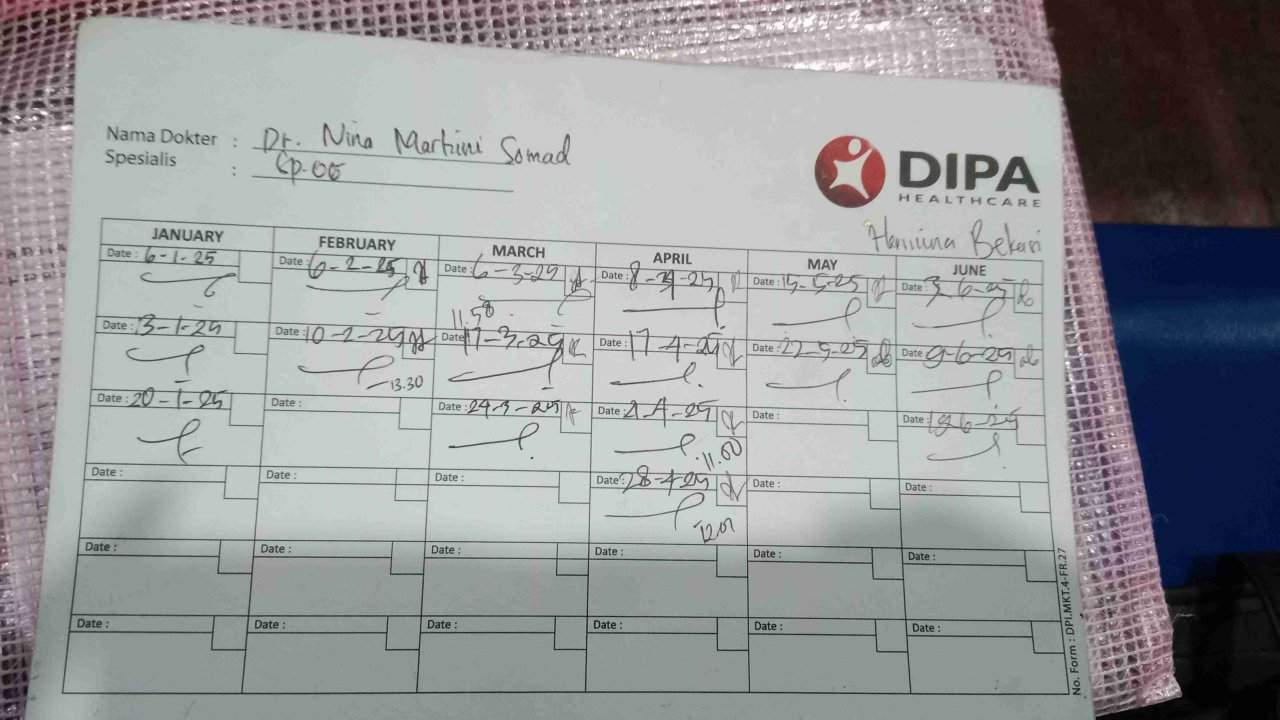 Nama Dokter : Dr. Nina Martini Somad
Spesialis : Sp.OG
DIPA
HEALTHCARE
Bekasi
JANUARY FEBRUARY MARCH APRIL MAY JUNE
Date : 6-1-25 Date : 6-2-25 Date : 6-3-25 Date : 8-4-25 Date : 15-5-25 Date : 3-6-25
11.58
Date : 13-1-25 Date : 10-2-25 Date : 17-3-25 Date : 17-4-25 Date : 22-5-25 Date : 9-6-25
13.30
Date : 20-1-25 Date : Date : 24-3-25 Date : 21-4-25 Date : Date : 18-6-25
11.00
Date : Date : Date : Date : 28-4-25 Date : Date :
12.01
Date : Date : Date : Date : Date : Date :
Date : Date : Date : Date : Date : Date :
No. Form : DPI.MKT.4-FR.27